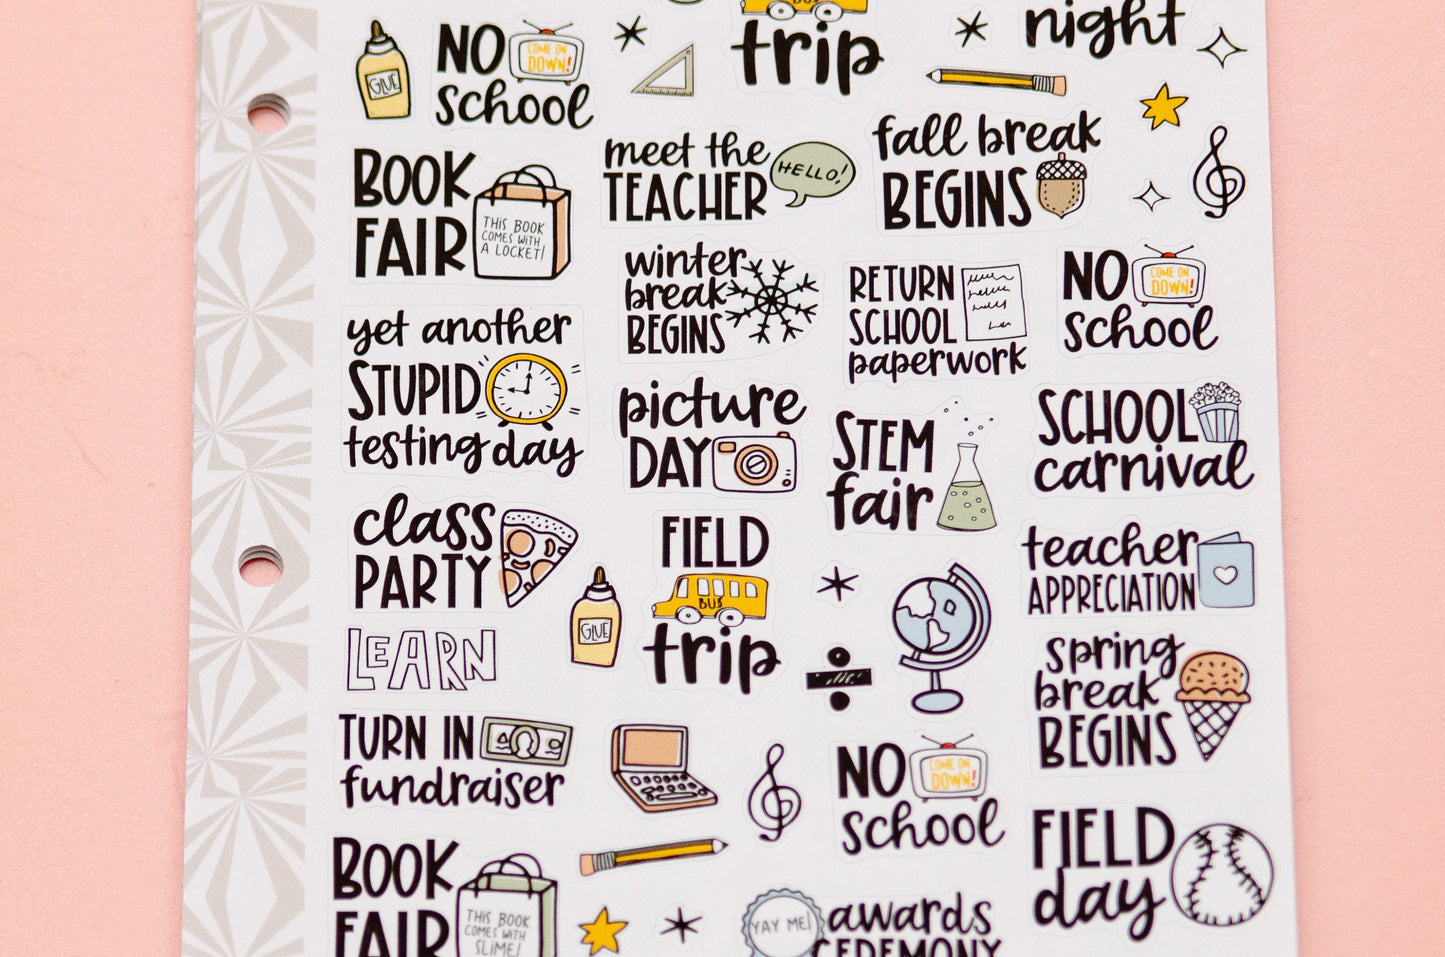 GLUE
NO
COME ON
DOWN!
school
BUS
trip
night
BOOK
FAIR
THIS BOOK
COMES WITH
A LOCKET!
meet the
TEACHER
HELLO!
fall break
BEGINS
winter
break
BEGINS
RETURN
SCHOOL
paperwork
NO
COME ON
DOWN!
school
yet another
STUPID
testing day
picture
DAY
STEM
fair
SCHOOL
carnival
class
PARTY
GLUE
FIELD
BUS
trip
teacher
APPRECIATION
LEARN
spring
break
BEGINS
TURN IN
fundraiser
NO
COME ON
DOWN!
school
FIELD
day
BOOK
FAIR
THIS BOOK
COMES WITH
SLIME!
YAY ME!
awards
CEREMONY